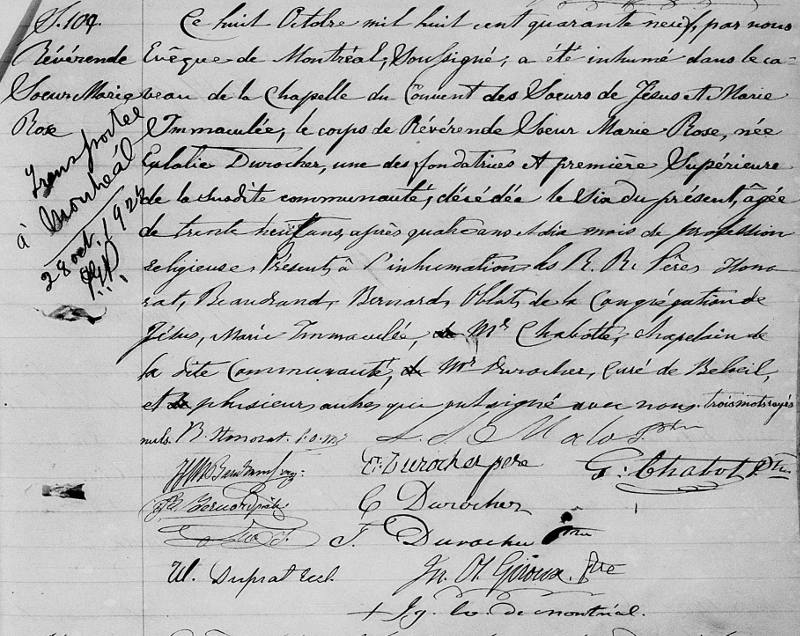 S. 109
Révérende
Soeur Marie
Rose
Transportée
à Montréal
28 oct. 1925
Ce huit Octobre mil huit cent quarante neuf, par nous
Evêque de Montréal, Soussigné, a été inhumé dans le ca-
veau de la Chapelle du Couvent des Soeurs de Jésus et Marie
Immaculée, le corps de Révérende Soeur Marie Rose, née
Eulalie Durocher, une des fondatrices et première Supérieure
de la susdite communauté, décédée le Six du présent, âgée
de trente huit ans, après quatre ans et dix mois de profession
religieuse. Présents à l'inhumation les R. R. Pères Hono-
rat, Beaudrand, Bernard, Oblats de la Congrégation de
Jésus, Marie Immaculée, de Mr Chabotte, chapelain de
la dite Communauté, de Mr Durocher, Curé de Beloeil,
et de plusieurs autres qui ont signé avec nous. trois mots rayés
nuls. B. Honorat. p.o.m
E. Durocher père
G. Chabot Ptre
C Durocher
T. Durocher ptre
W. Duprat Eccl.
Jn. Ol. Giroux. Ptre
+ Ig. Ev. de Montréal.